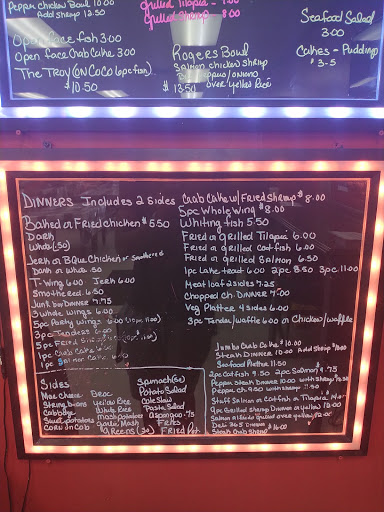 Pepper Chicken Bowl 10.00
Add shrimp 12.50
Grilled Tilapia - 7.00
Grilled Shrimp 8.00
Open face fish 3.00
Open face Crab Cake 3.00
The Troy (on CoCo (6pc fish)
$10.50
Rogers Bowl
Salmon chicken shrimp
Peppers/onions
$13.50 over yellow Rice
Seafood Salad
3.00
Cakes - Pudding
$3-5
DINNERS Includes 2 Sides
Baked or Fried chicken $5.50
Dark
White (.50)
Jerk or BQue Chicken or Smothered 6
Dark or white .50
T-Wing 6.00 Jerk 6.00
Smothered 6.50
Junk box Dinner 7.75
3 whole wings 6.00
5pc Party Wings 6.00
3pc Tenders 6.00
5pc Fried
1pc Crab Cake 6.00
1pc Salmon Cake
Crab Cake w/ Fried Shrimp $8.00
5pc Whole Wing $8.00
Whiting fish 5.50
Fried or grilled Tilapia 6.00
Fried or grilled Catfish 6.00
Fried or grilled Salmon 6.50
1pc Lake trout 6.00 2pc 8.50 3pc 11.00
Meat loaf 2 sides 7.25
Chopped ch. Dinner 7.00
Veg Platter 4 sides 6.00
3pc Tender/waffle 6.00 or Chicken/waffles
Sides
Mac Cheese
String beans
Cabbage
Sweet potatoes
Corn on Cob
Broc
Yellow Rice
White Rice
Mash potatoes
Garlic Mash
Greens
Spinach
Potato Salad
Cole Slaw
Pasta Salad
Asparagus .75
Fries
Fried
Jumbo Crab Cake $10.00
Steak Dinner 10.00 Add Shrimp
Seafood Platter 11.50
2pc Catfish 9.50 2pc Salmon 9.75
Pepper Steak Dinner 10.00 with shrimp
Pepper ch. 9.50 with shrimp 11.50
Stuff Salmon or Catfish or Tilapia
9pc Grilled Shrimp Dinner or yellow 12.00
Salmon grilled over yellow
Deli Dinner
Steak Crab Shrimp $16.00